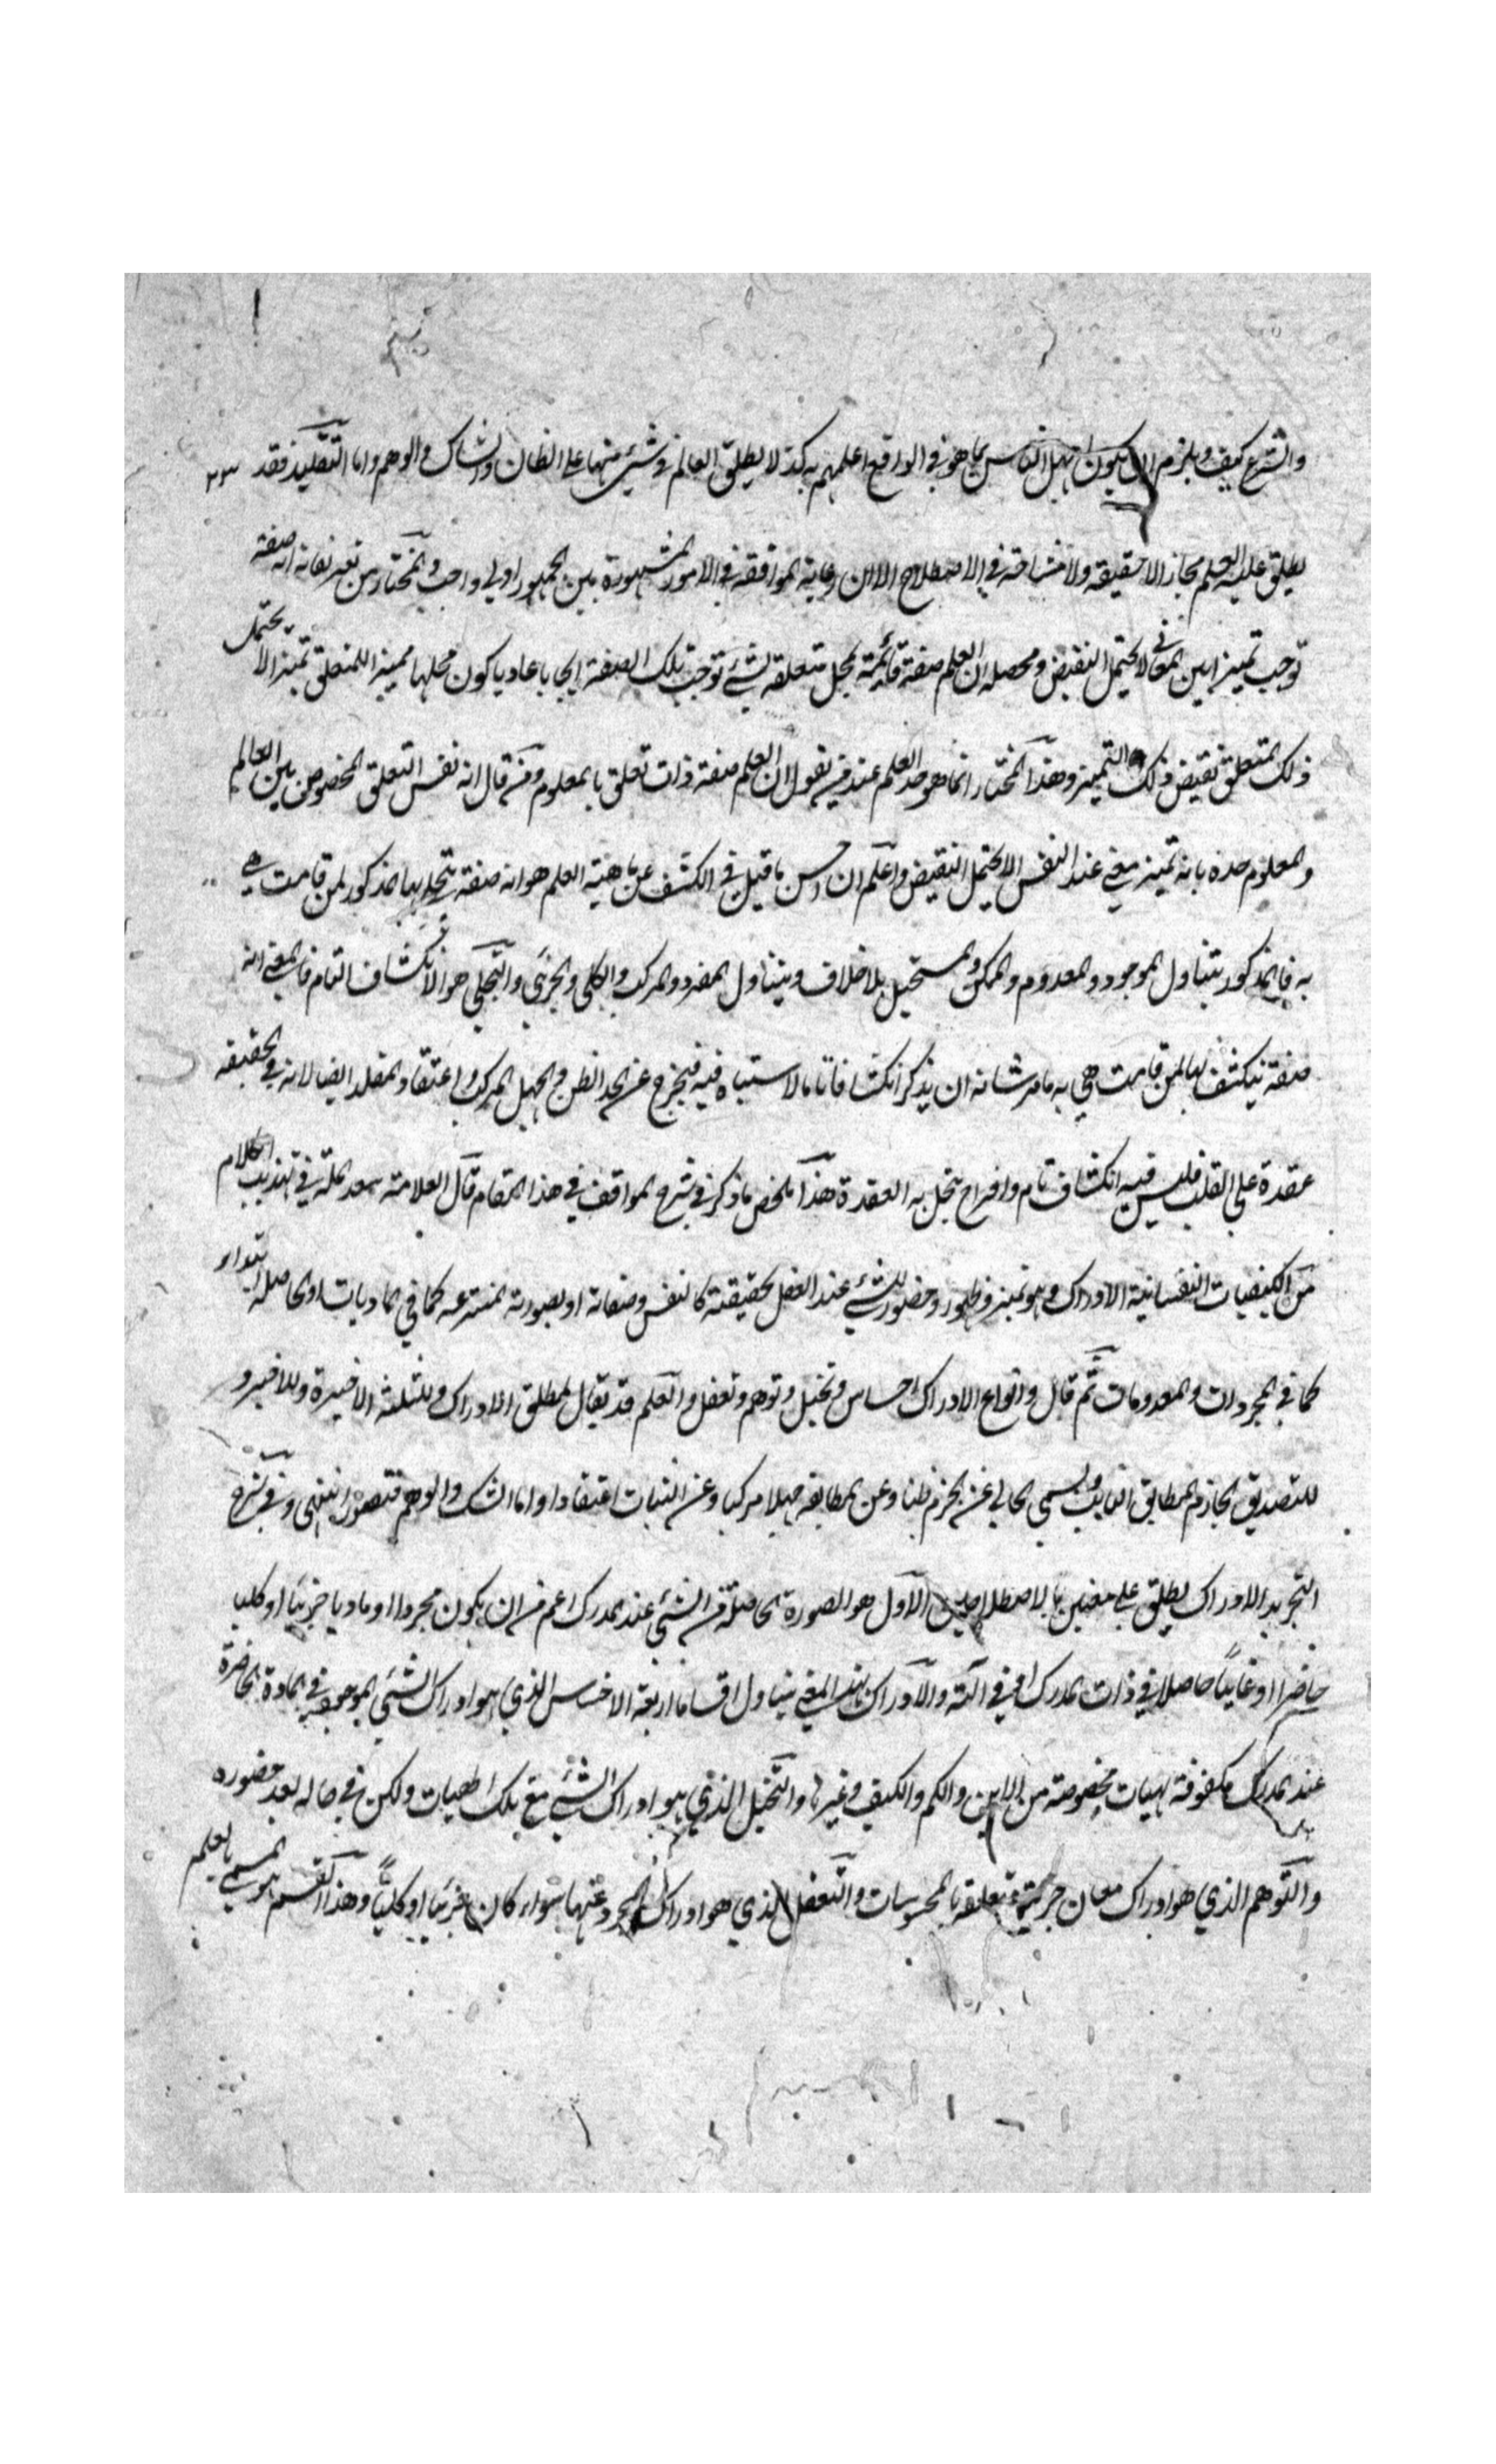 والشرع كيف ويلزم ان يكون اجهل الناس بما هو في الواقع اعلمهم به كذا لا يطلق العالم في شيئ منها على الظان والشاك والوهم واما التقليد فقد
يطلق عليه العلم مجازا لا حقيقة ولا مشاحة في الاصطلاح الا ان رعاية الموافقة في الامور المشهورة بين الجمهور اولى واجب والمختار من تعريفاته انه صفة
توجب تمييزا بين المعاني لا يحتمل النقيض ومحصله ان العلم صفة قائمة بمحل متعلقة بشئ توجب تلك الصفة ايجابا عاديا كون محلها مميزا للمتعلق تميزا لا يحتمل
ذلك المتعلق نقيض ذلك التمييز وهذا المختار انما هو حد العلم عند من يقول ان العلم صفة ذات تعلق بالمعلوم ومن قال انه نفس التعلق المخصوص بين العالم
والمعلوم حده بانه تمييز معنى عند النفس لا يحتمل النقيض واعلم ان احسن ما قيل في الكشف عن ماهية العلم هو انه صفة يتجلى بها المذكور لمن قامت هي
به فالمذكور يتناول الموجود والمعدوم والممكن والمستحيل بلا خلاف ويتناول المفرد والمركب والكلي والجزئي والتجلي هو الانكشاف التام فالمعنى انه
صفة ينكشف بها لمن قامت هي به ما من شانه ان يذكر انكشافا تاما لا اشتباه فيه فيخرج عن الحد الظن والجهل المركب واعتقاد المقلد ايضا لانه في الحقيقة
عقدة على القلب فليس فيه انكشاف تام وانشراح ينحل به العقدة هذا ملخص ما ذكر في شرح المواقف في هذا المقام قال العلامة سعد الملة في تهذيب الكلام
من الكيفيات النفسانية الادراك وهو تميز وظهور وحضور للشئ عند العقل بحقيقته كالنفس وصفاته او بصورته المنتزعه كما في الماديات او الحاصلة ابتداء
كما في المجردات والمعدومات ثم قال وانواع الادراك احساس وتخيل وتوهم وتعقل والعلم قد يقال لمطلق الادراك وللثلثة الاخيرة وللاخير و
للتصديق الجازم المطابق الثابت ويسمى الخالي عن الجزم ظنا وعن المطابقه جهلا مركبا وعن الثبات اعتقادا واما الشك والوهم فتصور انتهى وفي شرح
التجريد الادراك يطلق على معنيين بالاصطلاحين الاول هو الصورة الحاصلة من الشئ عند المدرك اعم من ان يكون مجردا او ماديا جزئيا او كليا
حاضرا او غائبا حاصلا في ذات المدرك او في الته والادراك بهذا المعنى يتناول اقساما اربعة الاحساس الذي هو ادراك الشئ الموجود في المادة الحاضرة
عند المدرك مكفوفة بهيات مخصوصة من الاين والكم والكيف وغيرها والتخيل الذي هو ادراك الشئ مع تلك الهيات ولكن في حاله بعد حضوره
والتوهم الذي هو ادراك معان جزئية متعلقه بالمحسوسات والتعقل الذي هو ادراك المجرد عنها سواء كان جزئيا او كليا وهذا القسم هو المسمى بالعلم